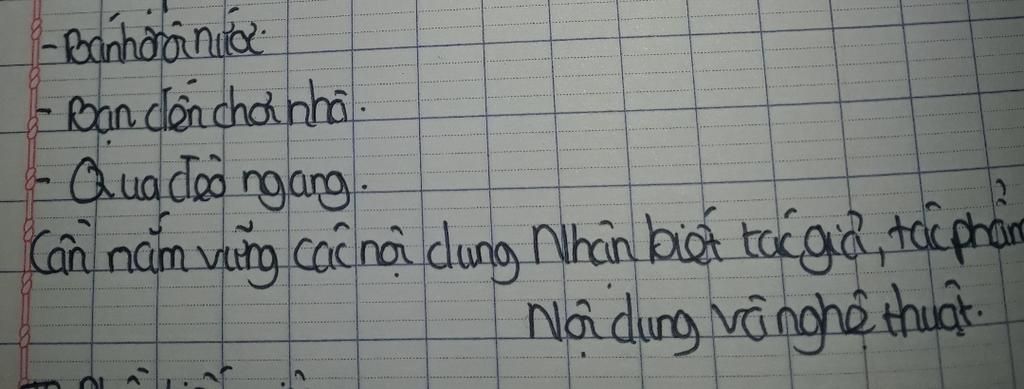 - Bánh trôi nước.
- Bạn đến chơi nhà.
- Qua đèo ngang.
Cần nắm vững các nội dung Nhận biết tác giả, tác phẩm
Nội dung và nghệ thuật.